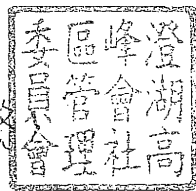 澄湖高
峰會社
區管理
委員會